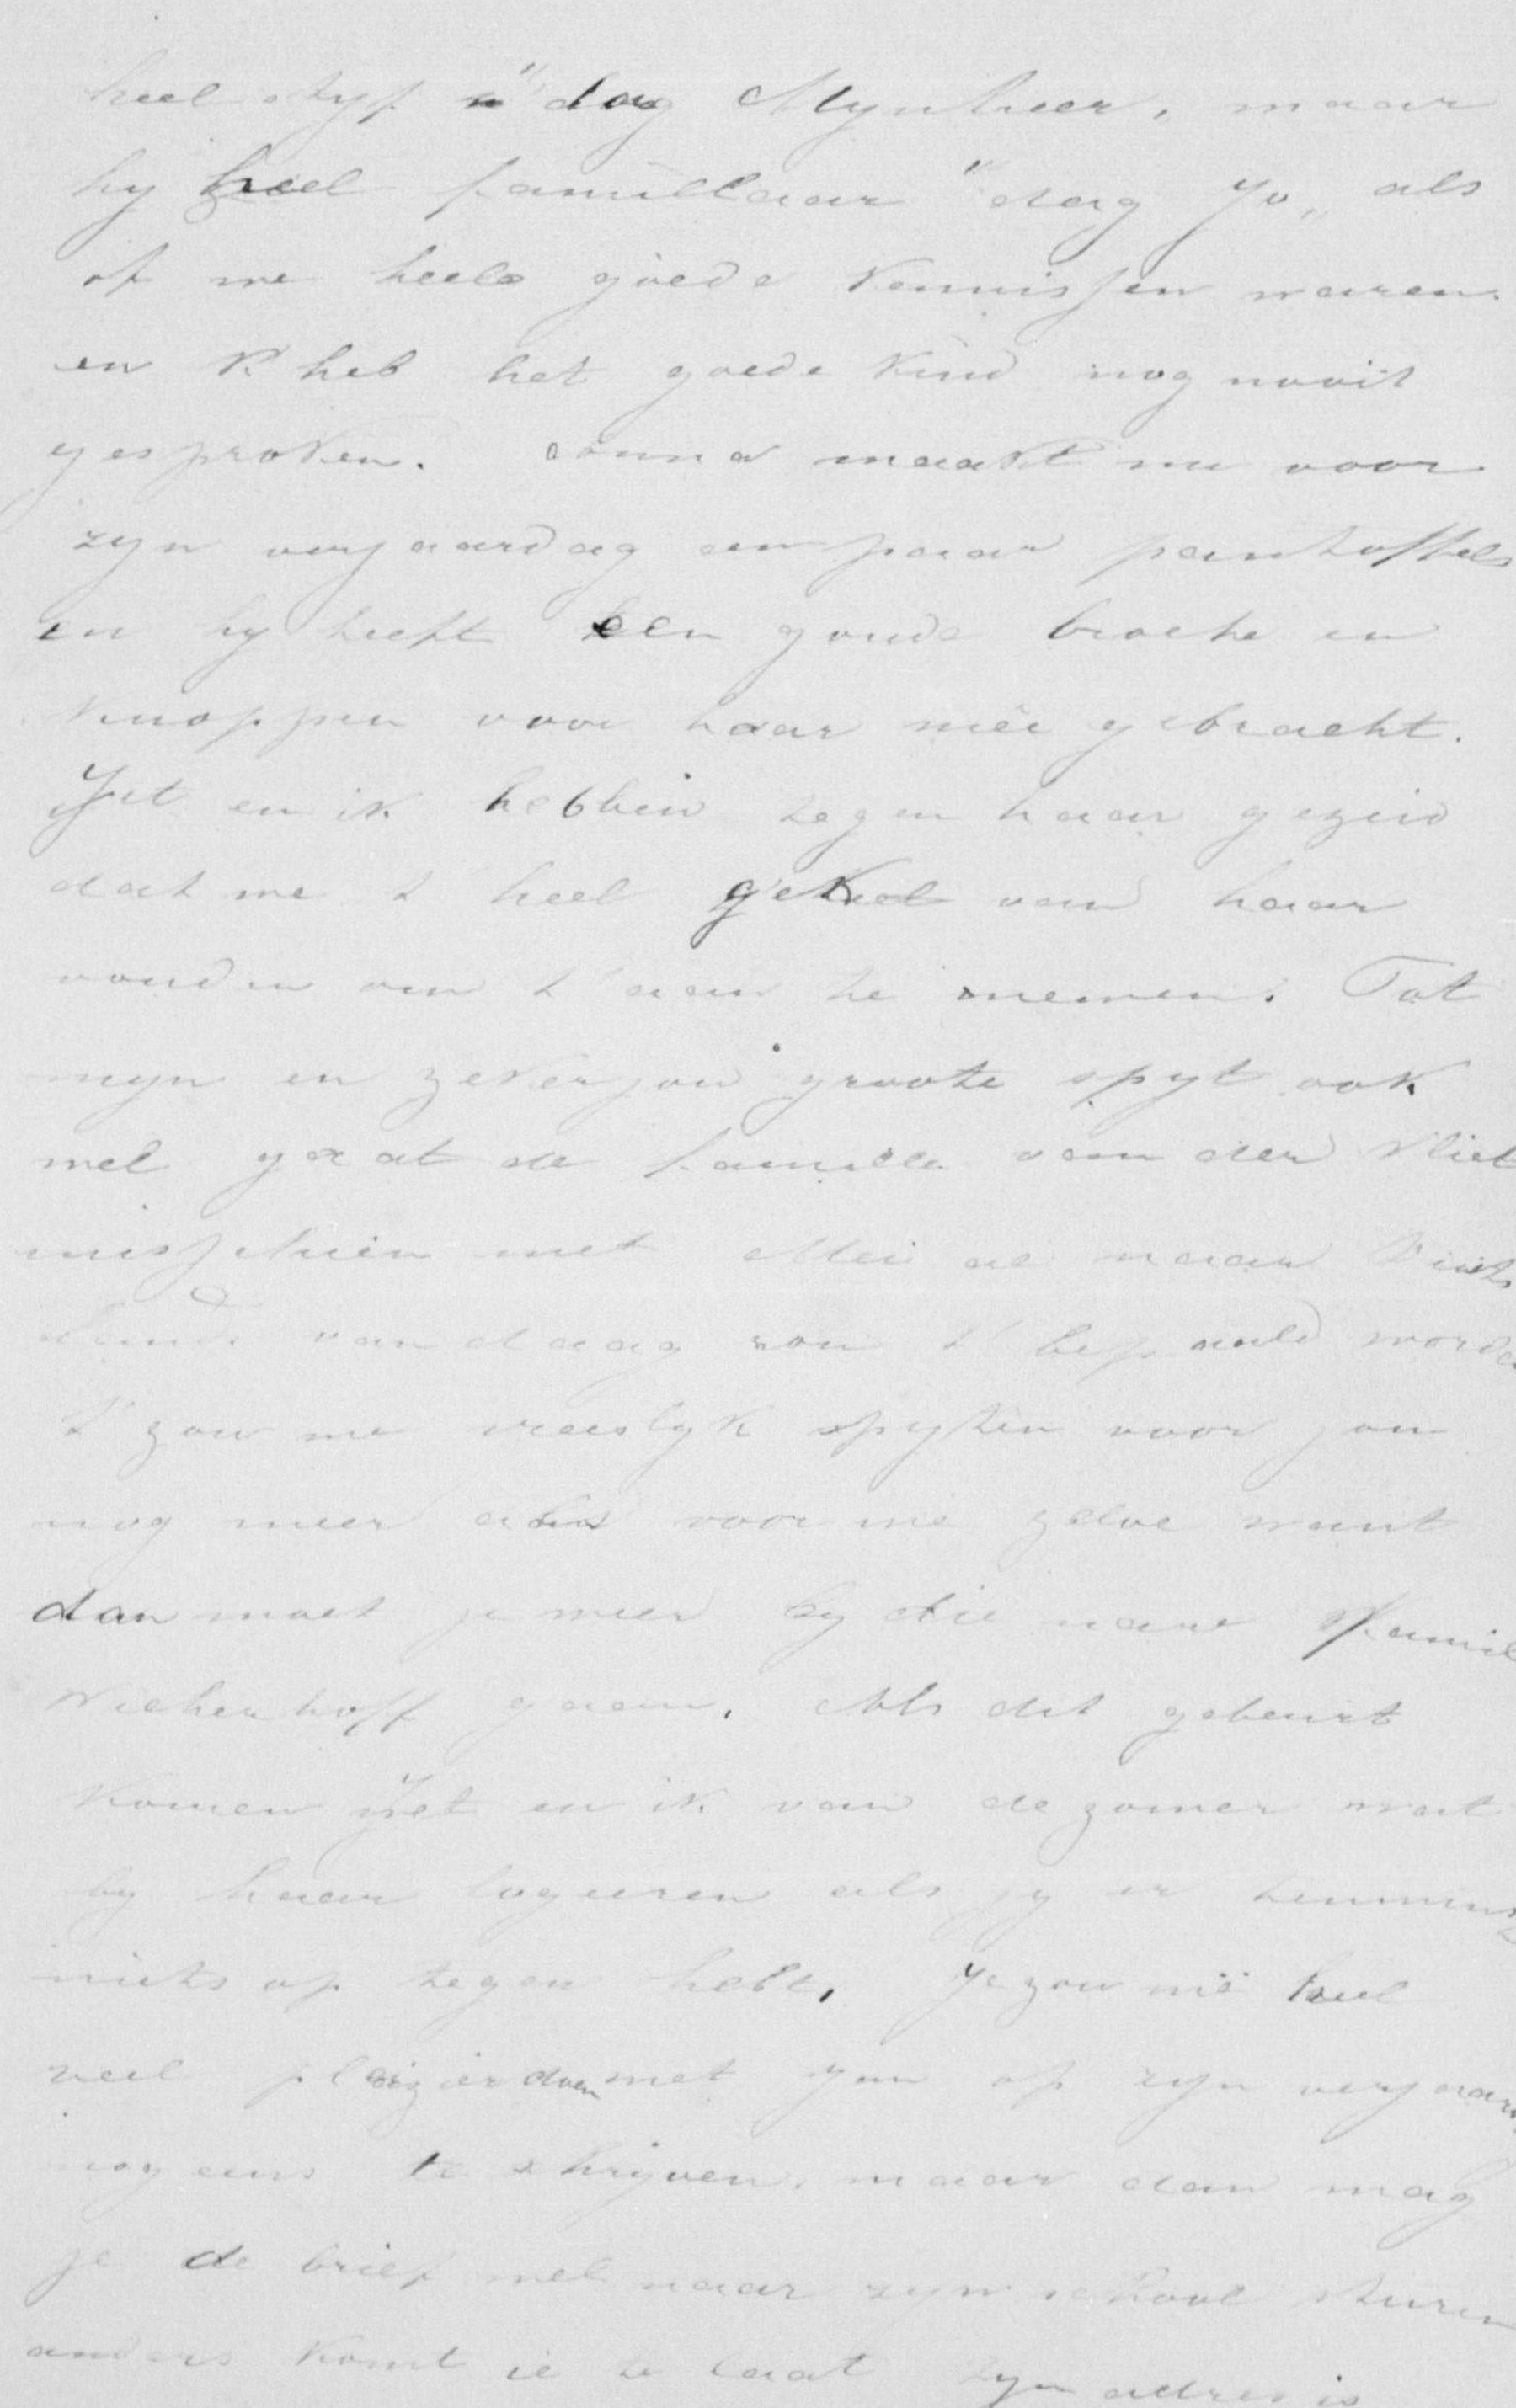 heel styf "dag Mynheer, maar
hy heel familiaar "dag Jo„ als
of we heele goede kennissen waren.
en k heb het goede kind nog nooit
gesproken. Anna maakt nu voor
zyn verjaardag een paar pantoffels
en hy heeft een goude broche en
knoppen voor haar mée gebracht.
Jet en ik hebben tegen haar gezeid
dat we t heel gek van haar
vonden om t aan te nemen. Tot
myn en zeker jou groote spyt ook
wel gaat de familie van der Vliet
misschien met Mei al naar
vandaag zou t bepaald worden
t zou me vreeslyk spyten voor jou
nog meer als voor me zelve want
dan moet je meer by die nare Famil
Wichenhoff gaan. Als dit gebeurt
komen Jet en ik van de zomer wat
by haar logeeren als jy er temminst
niets op tegen hebt. Je zou me heel
veel pleizier doen met Jan op zyn verjaar
nog eens te schryven. maar dan mag
je de brief wel naar zyn school sturen
anders komt ie te laat zyn adres is